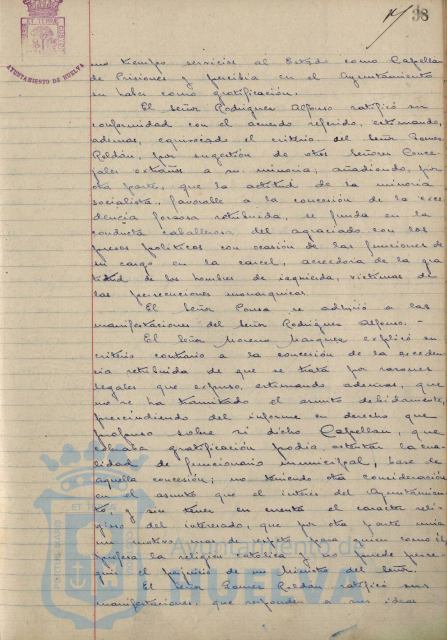 38
AYUNTAMIENTO DE HUELVA
mo tiempo servicios al Estado como Capellan
de Prisiones y percibia en el Ayuntamiento
su haber como gratificación.
El Señor Rodriguez Alfonso ratificó su
conformidad con el acuerdo referido, estimando,
ademas, equivocado el criterio del Señor Gomez
Roldán, por sugestión de otros Señores Conce
jales extraños a su minoria; añadiendo, por
otra parte, que la actitud de la minoria
socialista, favorable a la concesion de la exce
dencia forzosa retribuida, se funda en la
conducta caballerosa del agraciado con los
presos politicos con ocasión de las funciones de
su cargo en la carcel, acreedoria de la gra
titud de los hombres de izquierda, victimas de
las persecuciones monarquicas.
El Señor Ponsa se adhirió a las
manifestaciones del Señor Rodriguez Alfonso. -
El Señor Moreno Marquez explicó su
criterio contrario a la concesión de la exceden
cia retribuida de que se trata por razones
legales que expuso, estimando ademas, que
no se ha tramitado el asunto debidamente,
prescindiendo del informe en derecho que
propuso sobre si dicho Capellan, que
cobraba gratificación podia ostentar la cua
lidad de funcionario municipal, base de
aquella concesión; no teniendo otra consideración
en el asunto que el interés del Ayuntamien
to, y sin tener en cuenta el caracter reli
gioso del interesado, que por otra parte seria
un motivo mas de respeto para quien como él
profesa la religion catolica y no puede perse
guir el perjuicio de un Ministro del Señor.
El Señor Gomez Roldán ratificó sus
manifestaciones, que responden a sus ideas
Ayuntamiento de
HUELVA